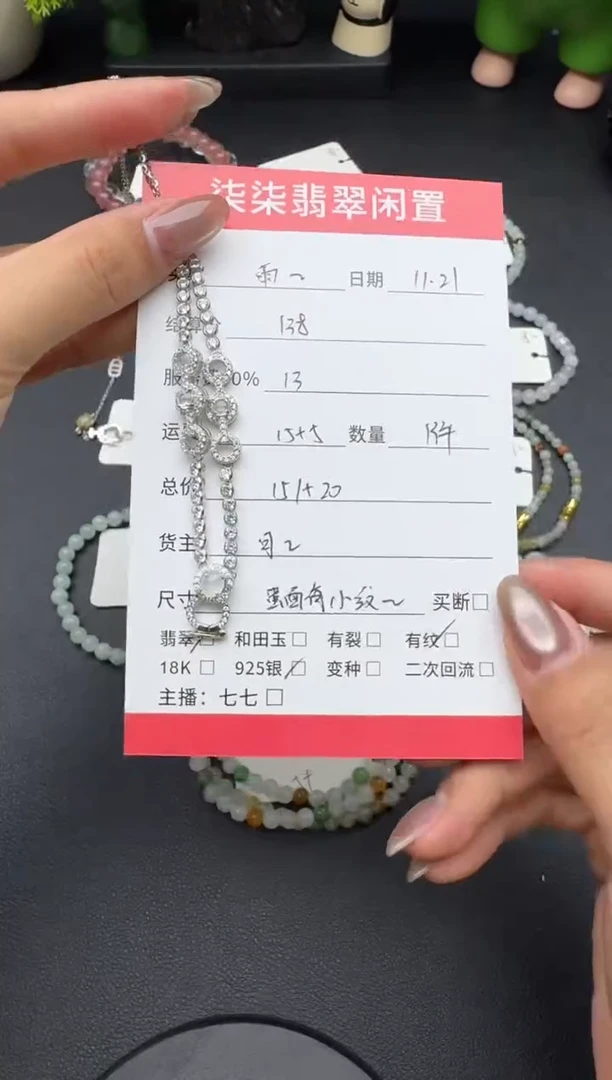 柒柒翡翠闲置
雨~ 日期 11.21
结算 138
服 0% 13
运 15+5 数量 1件
总价 151+20
货主
尺寸 蛋面有小纹~ 买断□
翡翠□ 和田玉□ 有裂□ 有纹□
18K □ 925银□ 变种□ 二次回流□
主播：七七 □